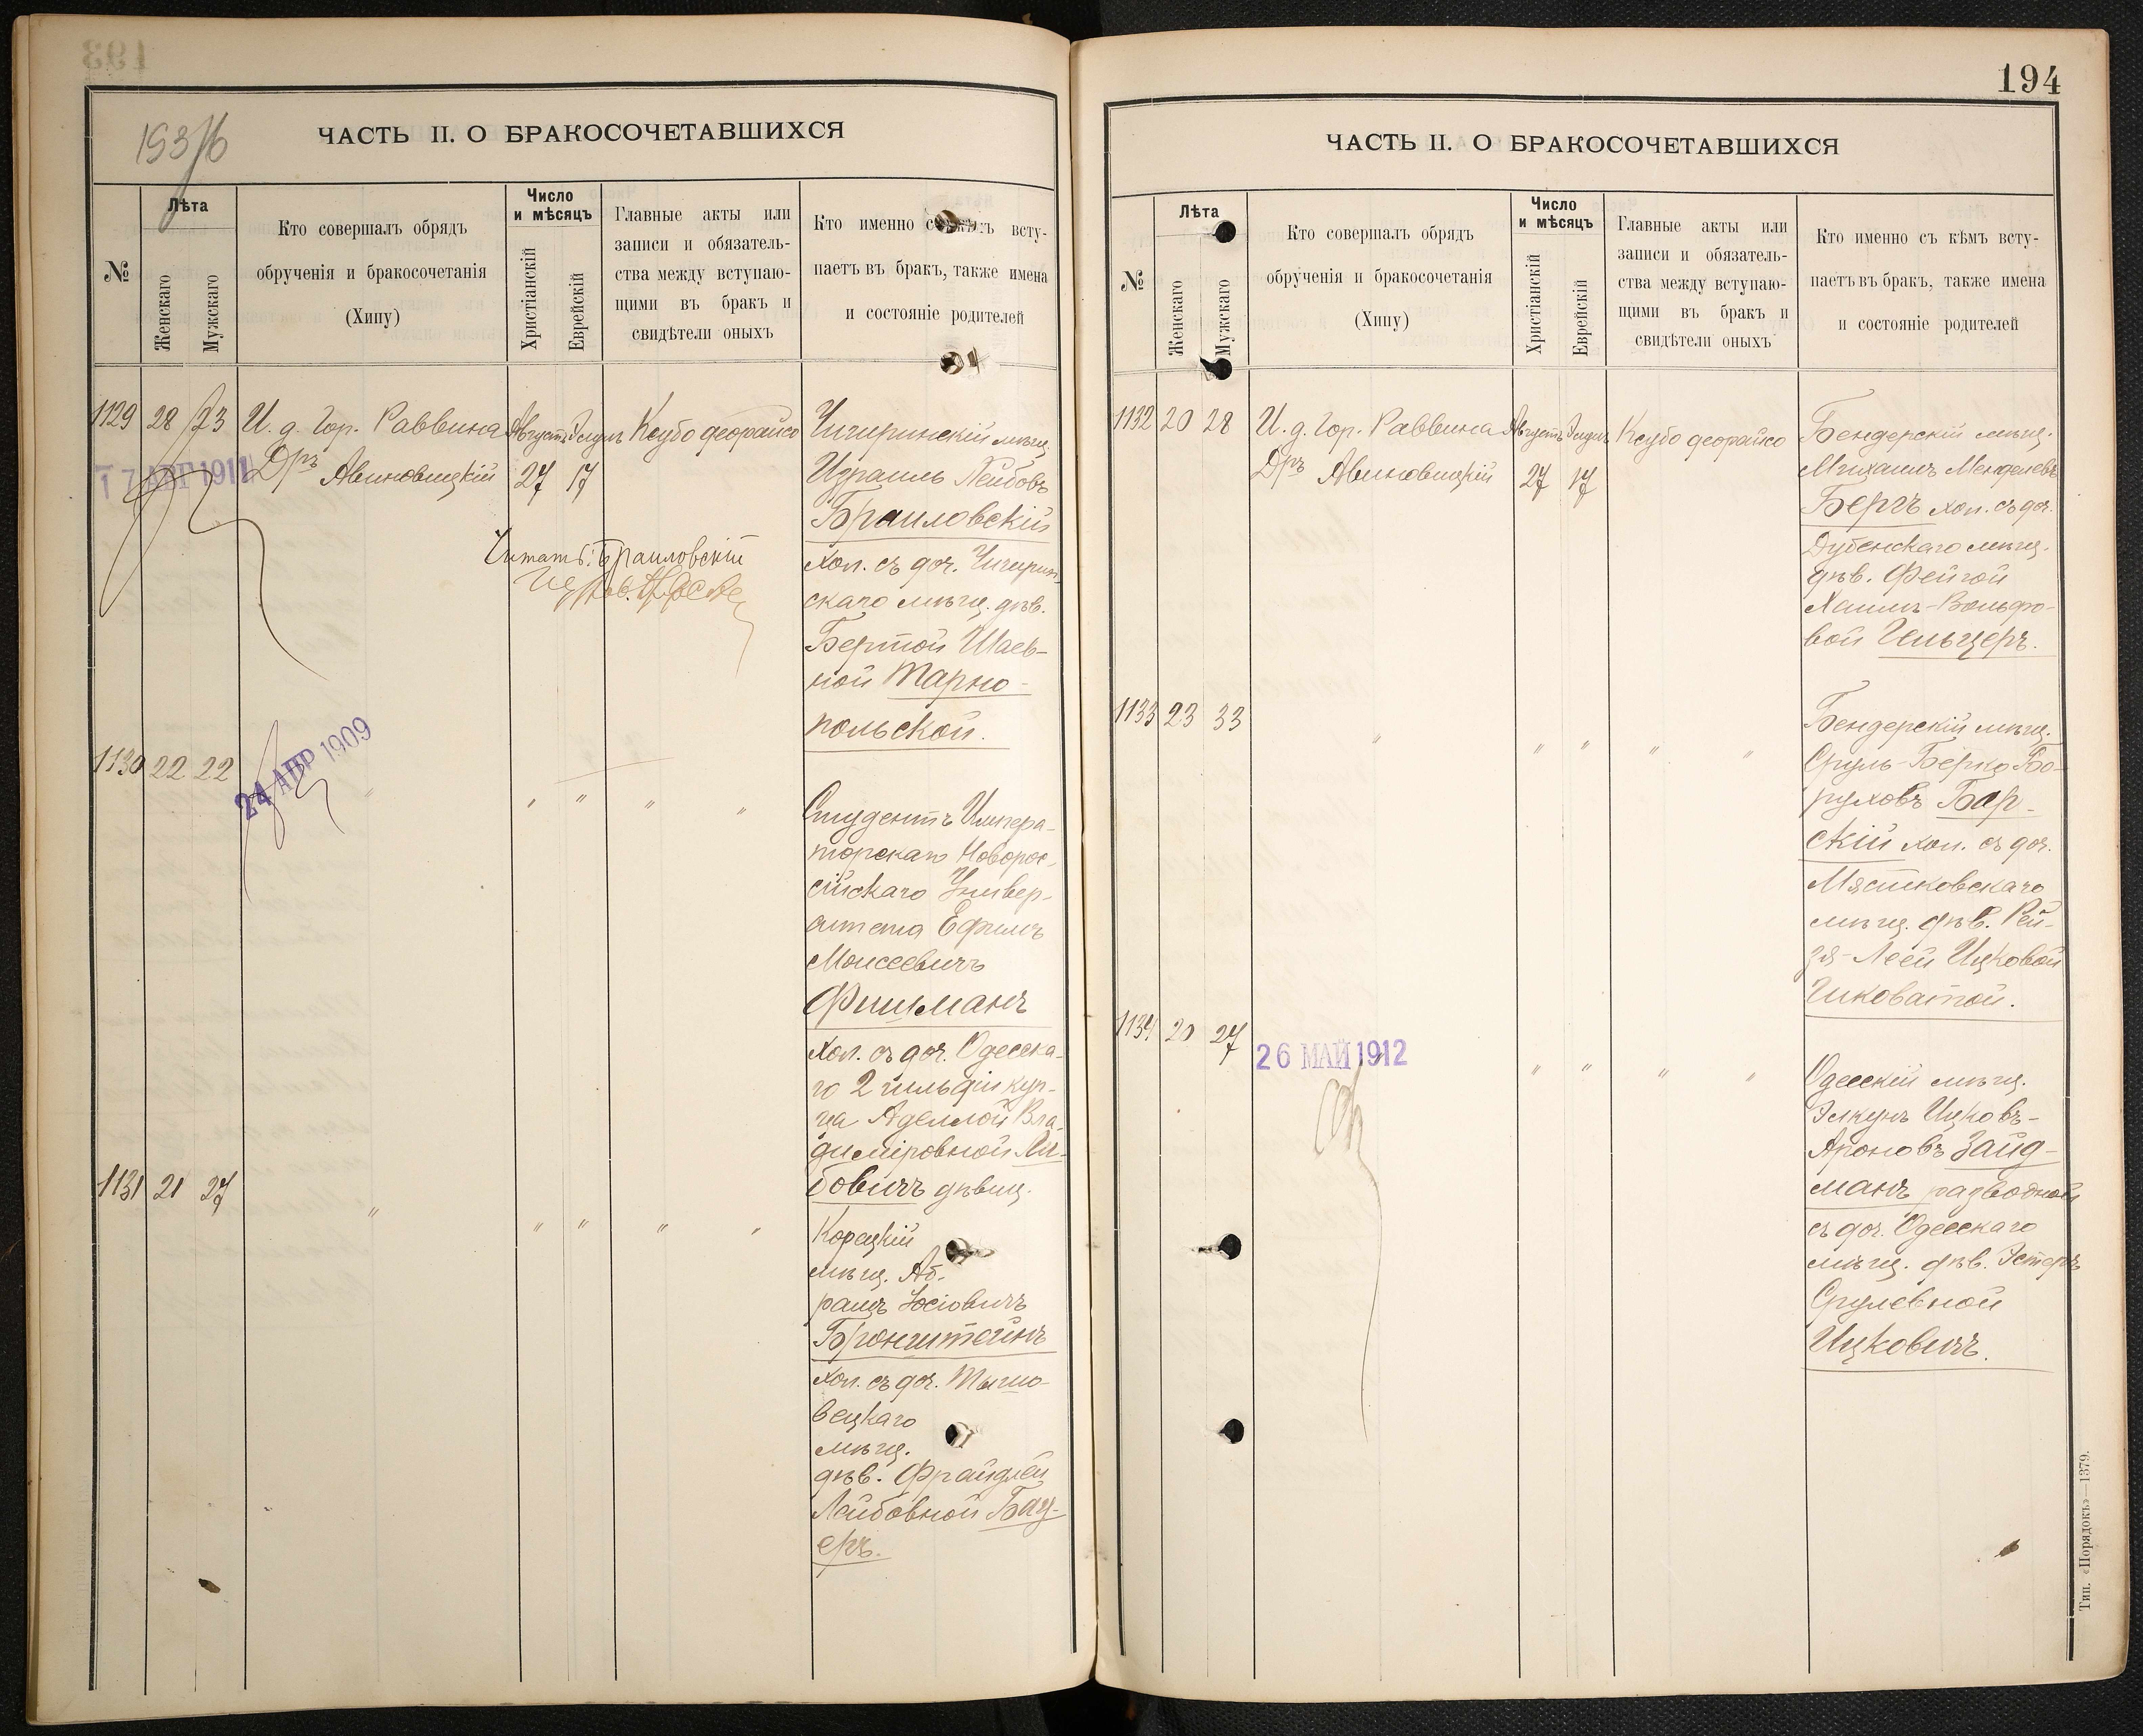 193/б
ЧАСТЬ II. О БРАКОСОЧЕТАВШИХСЯ
№
Лѣта
Женскаго
Мужскаго
Кто совершалъ обрядъ
обрученія и бракосочетанія
(Хипу)
Число
и мѣсяцъ
Христіанскій
Еврейскій
Главные акты или
записи и обязатель-
ства между вступаю-
щими въ бракъ и
свидѣтели оныхъ
Кто именно съ кѣмъ всту-
паетъ въ бракъ, также имена
и состояніе родителей
1129 28 23 И. д. Гор. Раввина Августъ Элулъ Ксубо деорайсо
Дръ Авиновицкій 27 17
17 АПГ 1911
Чигиринскій мѣщ.
Израиль Лейбовъ
Браиловскій
хол. съ доч. Чигирин-
скаго мѣщ. дѣв.
Бертой Шаев-
ной Тарно-
польской.
Читать: Браиловскій
1130 22 22 " " " " "
24 АПР 1909
Студентъ Импера-
торскаго Новорос-
сійскаго Универ-
ситета Ефимъ
Моисеевичъ
Фишманъ
хол. съ доч. Одесска-
го 2 гильдіи куп-
ца Аделлой Вла-
диміровной Ли-
бовичъ дѣвиц.
1131 21 27 " " " " "
Корецкій
мѣщ. Аб-
рамъ Іосіовичъ
Бронштейнъ
хол. съ доч. Тышо-
вецкаго
мѣщ.
дѣв. Фрайдлей
Лейбовной Бау-
еръ.
194
ЧАСТЬ II. О БРАКОСОЧЕТАВШИХСЯ
№
Лѣта
Женскаго
Мужскаго
Кто совершалъ обрядъ
обрученія и бракосочетанія
(Хипу)
Число
и мѣсяцъ
Христіанскій
Еврейскій
Главные акты или
записи и обязатель-
ства между вступаю-
щими въ бракъ и
свидѣтели оныхъ
Кто именно съ кѣмъ всту-
паетъ въ бракъ, также имена
и состояніе родителей
1132 20 28 И. д. Гор. Раввина Августъ Элулъ Ксубо деорайсо
Дръ Авиновицкій 27 17
Бендерскій мѣщ.
Михаилъ Менделевъ
Бергъ хол. съ доч.
Дубенскаго мѣщ.
дѣв. Фейгой
Хаимъ-Вольфо-
вой Гельцеръ.
1133 23 33 " " " " "
Бендерскій мѣщ.
Сруль-Берко Бо-
руховъ Бар-
скій хол. съ доч.
Мястковскаго
мѣщ. дѣв. Рей-
зя-Леей Ицковой
Чиковатой.
1134 20 27 " " " "
26 МАЙ 1912
Одесскій мѣщ.
Элкунъ Ицковъ-
Ароновъ Зайд-
манъ разводной
съ доч. Одесскаго
мѣщ. дѣв. Эстеръ
Срулевной
Ицковичъ.
Тип. «Порядокъ»—1379.